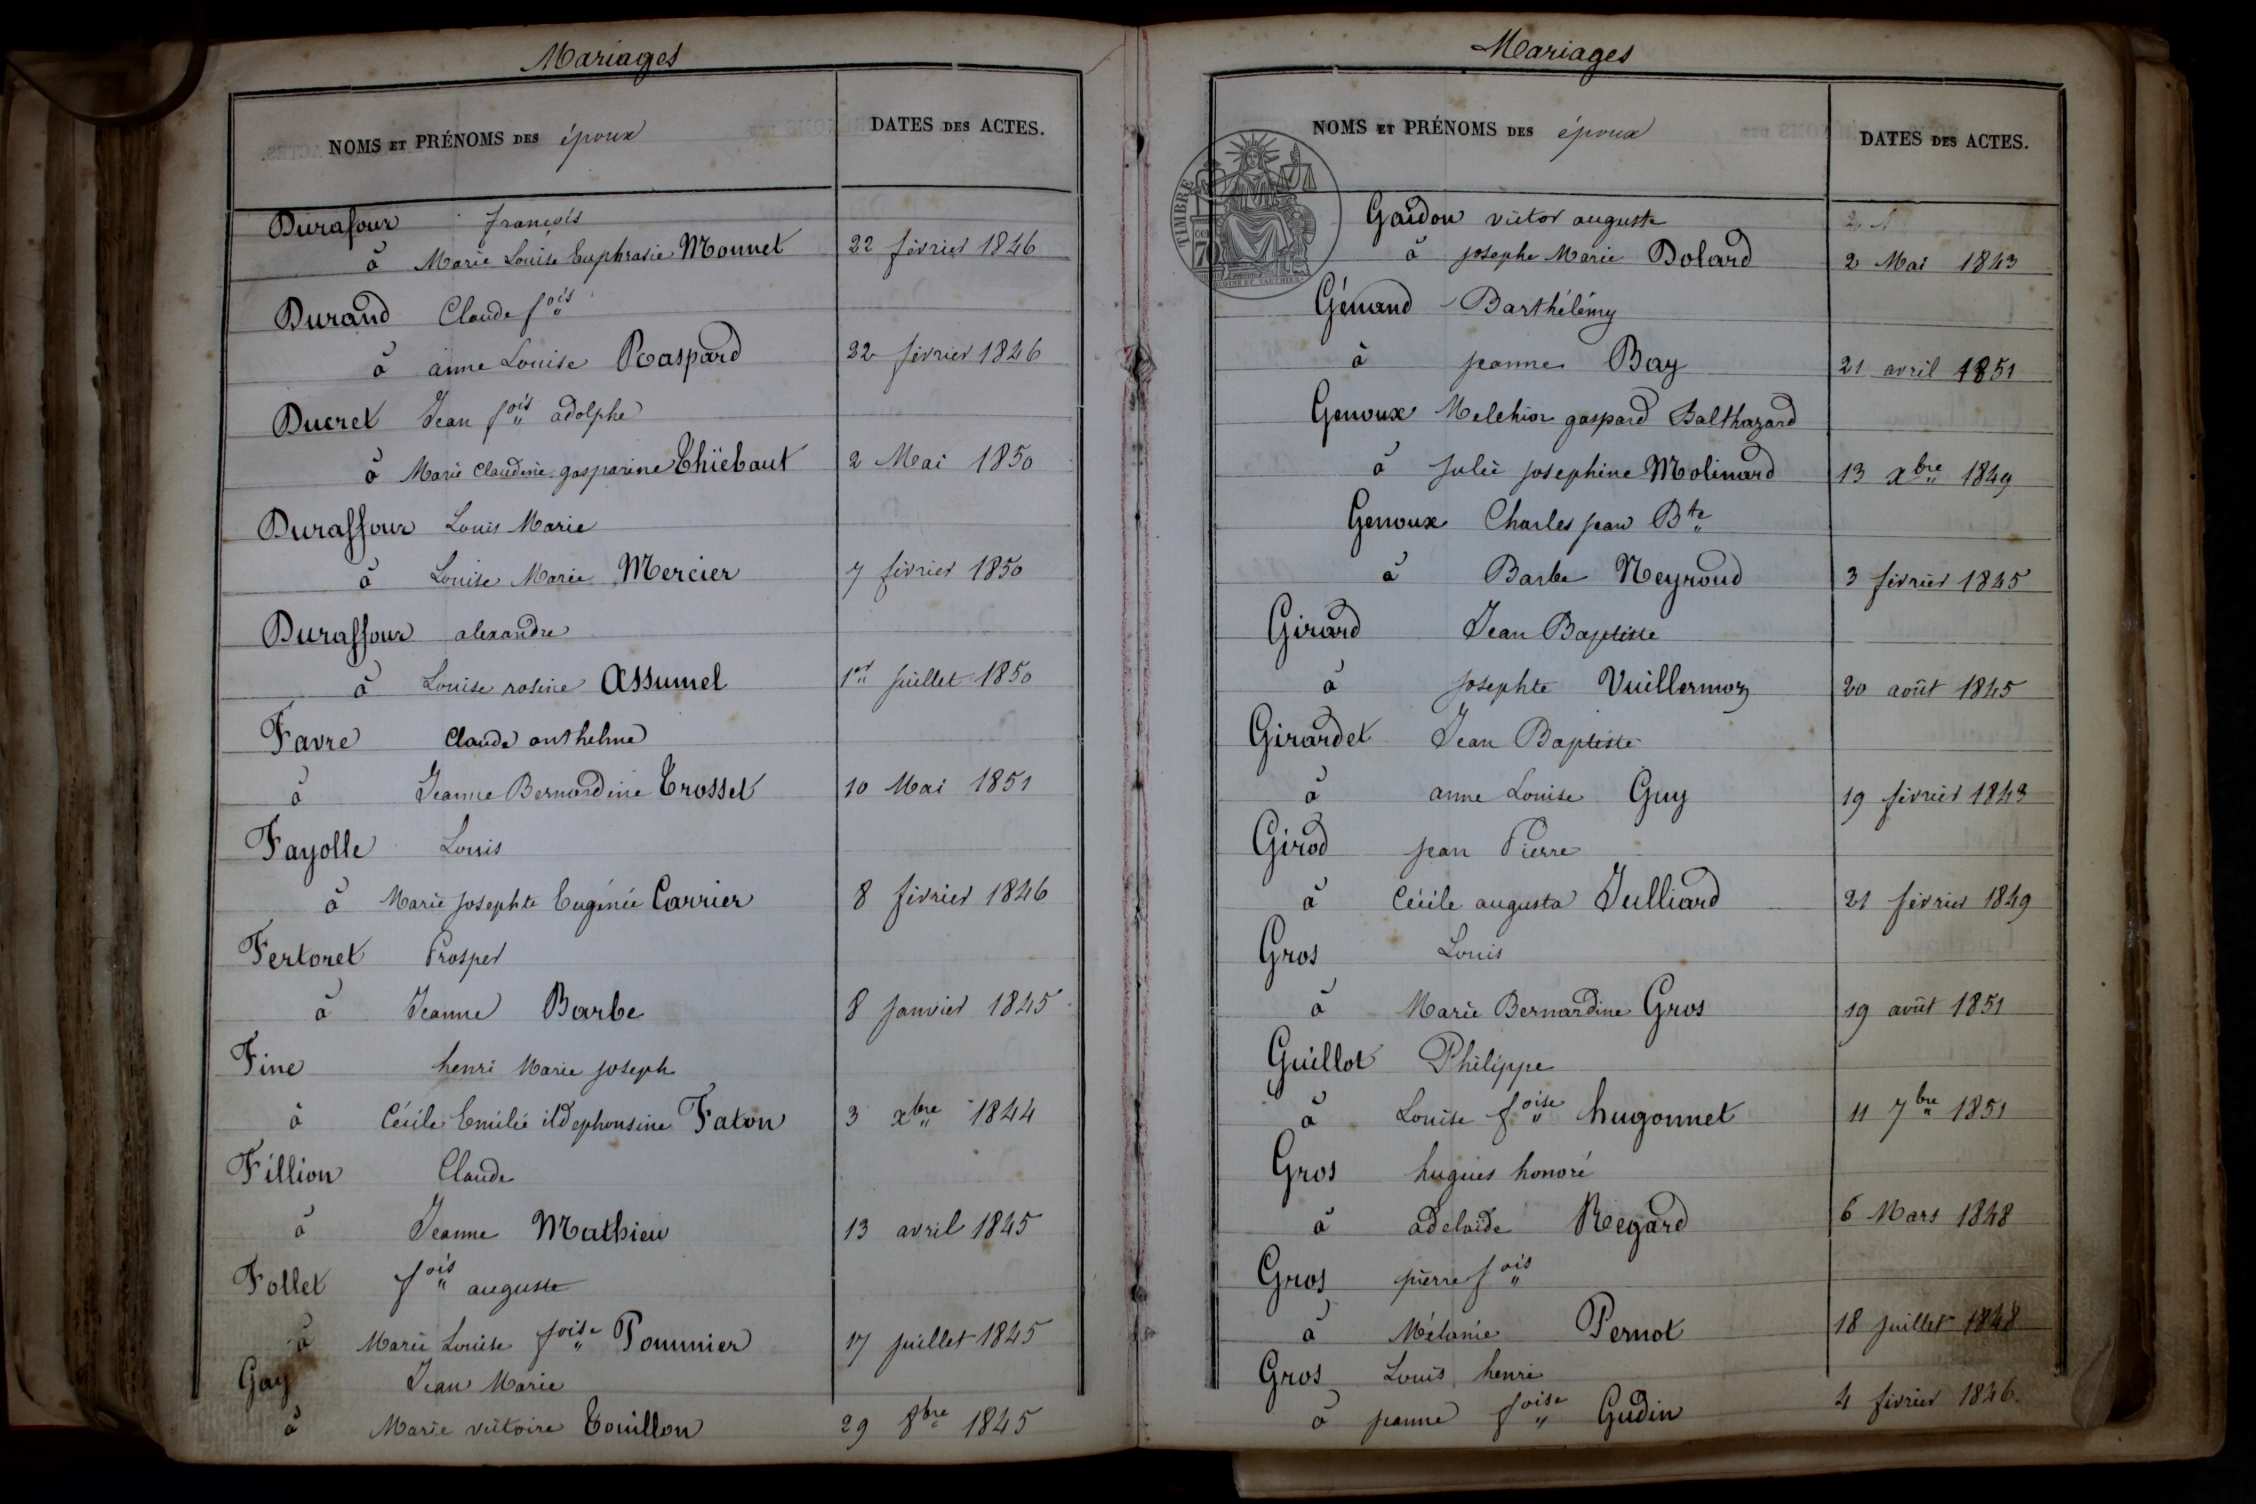 Mariages
NOMS ET PRÉNOMS DES époux
DATES DES ACTES.
Durafour françois
à Marie Louise Euphrasie Monnet 22 février 1846
Durand Claude fois
à anne Louise Raspard 22 février 1846
Ducret Jean fois adolphe
à Marie Claudine gasparine Thiébaut 2 Mai 1850
Duraffour Louis Marie
à Louise Marie Mercier 7 février 1850
Duraffour alexandre
à Louise rosine Assumel 1er juillet 1850
Favre Claude anthelme
à Jeanne Bernardine Crosset 10 Mai 1851
Fayolle Louis
à Marie Josephte Eugénie Carrier 8 février 1846
Fertoret Prosper
à Jeanne Barbe 8 janvier 1845
Fine henri Marie joseph
à Cécile Emilie ildephonsine Faton 3 xbre 1844
Fillion Claude
à Jeanne Mathieu 13 avril 1845
Follet fois auguste
à Marie Louise foise Pommier 17 juillet 1845
Gay Jean Marie
à Marie victoire Touillon 29 8bre 1845
Mariages
NOMS ET PRÉNOMS DES époux
DATES DES ACTES.
TIMBRE
Gaidon victor auguste
à josephe Marie Dolard 2 Mai 1843
Génand Barthélémy
à jeanne Bay 21 avril 1851
Genoux Melchior gaspard Balthazard
à Julie josephine Molinard 13 xbre 1849
Genoux Charles jean Bte
à Barbe Neyroud 3 février 1845
Girard Jean Baptiste
à josephte Vuillermoz 20 août 1845
Girardet Jean Baptiste
à anne Louise Guy 19 février 1843
Girod jean Pierre
à Cécile augusta Julliard 21 février 1849
Gros Louis
à Marie Bernardine Gros 19 août 1851
Guillot Philippe
à Louise foise hugonnet 11 7bre 1851
Gros hugues honoré
à adelaïde Regard 6 Mars 1848
Gros pierre fois
à Mélanie Pernot 18 juillet 1848
Gros Louis henri
à jeanne foise Gudin 4 février 1846.